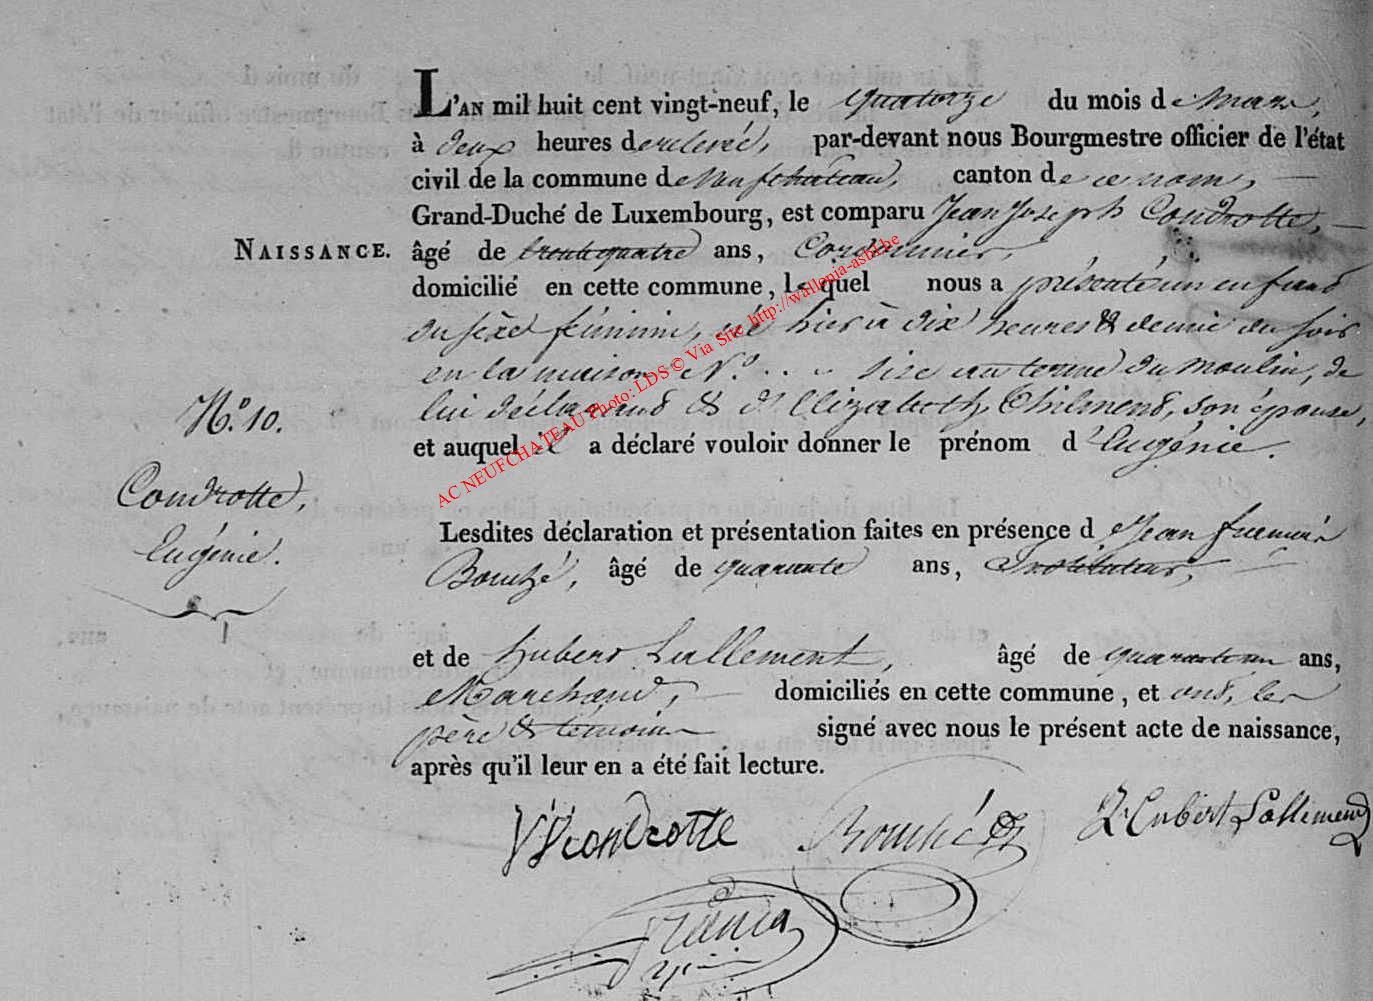 L'AN mil huit cent vingt-neuf, le quatorze du mois de mars,
à deux heures de relevé, par-devant nous Bourgmestre officier de l'état
civil de la commune de Neufchateau, canton de ce nom,
Grand-Duché de Luxembourg, est comparu Jean Joseph Condrotte,
NAISSANCE. âgé de trente quatre ans, Cordonnier,
domicilié en cette commune, lequel nous a présenté un enfant
du sèxe féminin, né hier à dix heures & demie du soir
en la maison N.° sise au terme du moulin, de
N.° 10. lui déclarant & d'Elizabeth Thilmend, son épouse,
et auquel il a déclaré vouloir donner le prénom d'Eugénie.
Condrotte,
Eugénie.
Lesdites déclaration et présentation faites en présence de Jean
Bouché, âgé de quarante ans, Instituteur,
et de Hubert Lallement, âgé de quarante un ans,
Marchand, domiciliés en cette commune, et ont, les
père & témoins signé avec nous le présent acte de naissance,
après qu'il leur en a été fait lecture.
JJ Condrotte Bouché Hubert Lallemend
AC NEUFCHATEAU Photo: LDS © Via Site http://wallonia-asbl.be